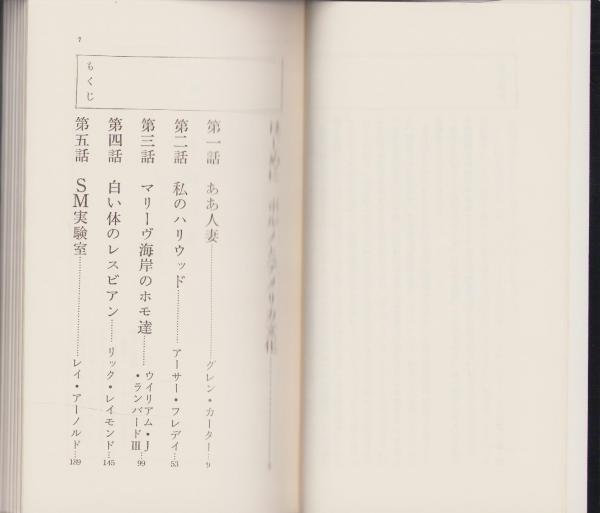 7
もくじ
第一話　ああ人妻………グレン・カーター…9
第二話　私のハリウッド………アーサー・フレディ…53
第三話　マリーヴ海岸のホモ達………ウイリアム・J・ランバードⅢ…99
第四話　白い体のレスビアン………リック・レイモンド…145
第五話　SM実験室………レイ・アーノルド…189